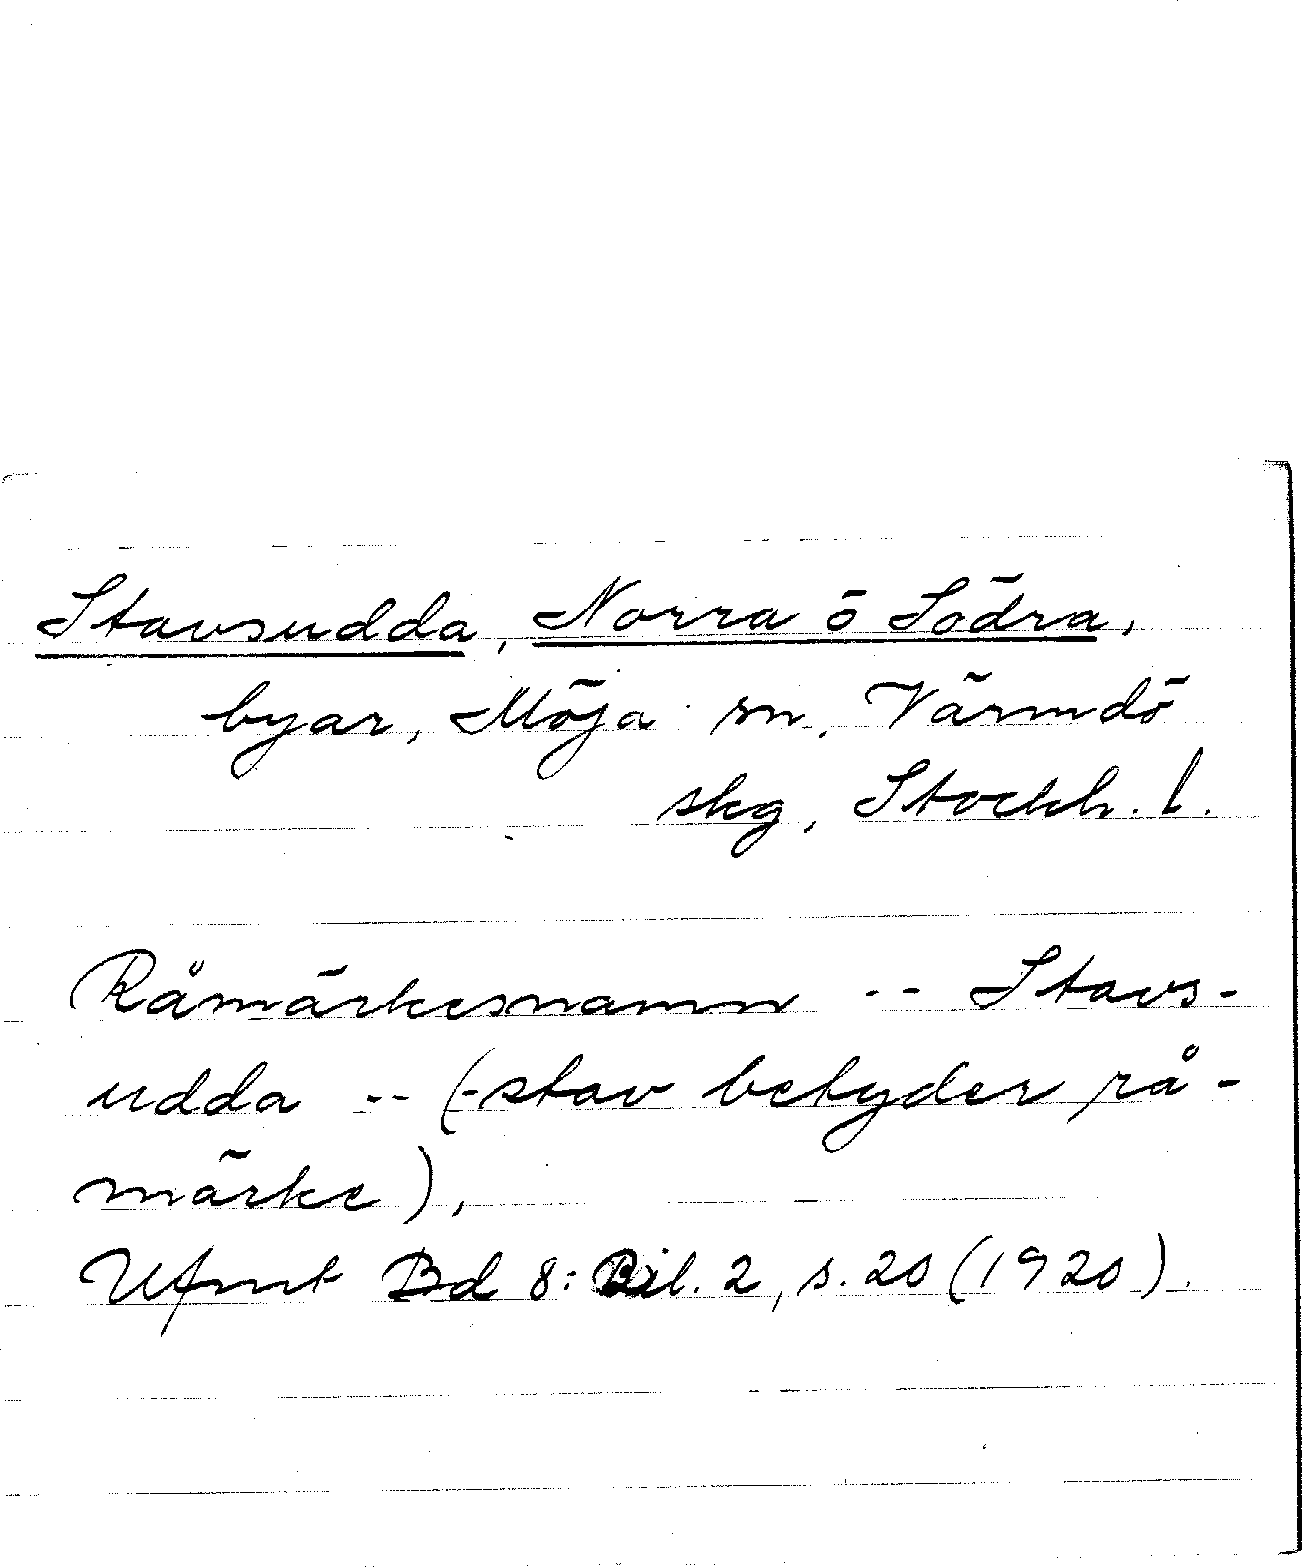 Stavsudda, Norra o Södra,
byar, Möja sn, Värmdö
skg, Stockh. l.
Råmärkesnamn -- Stavs-
udda -- (-stav betyder rå-
märke),
Ufmt Bd 8: Bil. 2, s. 20 (1920).